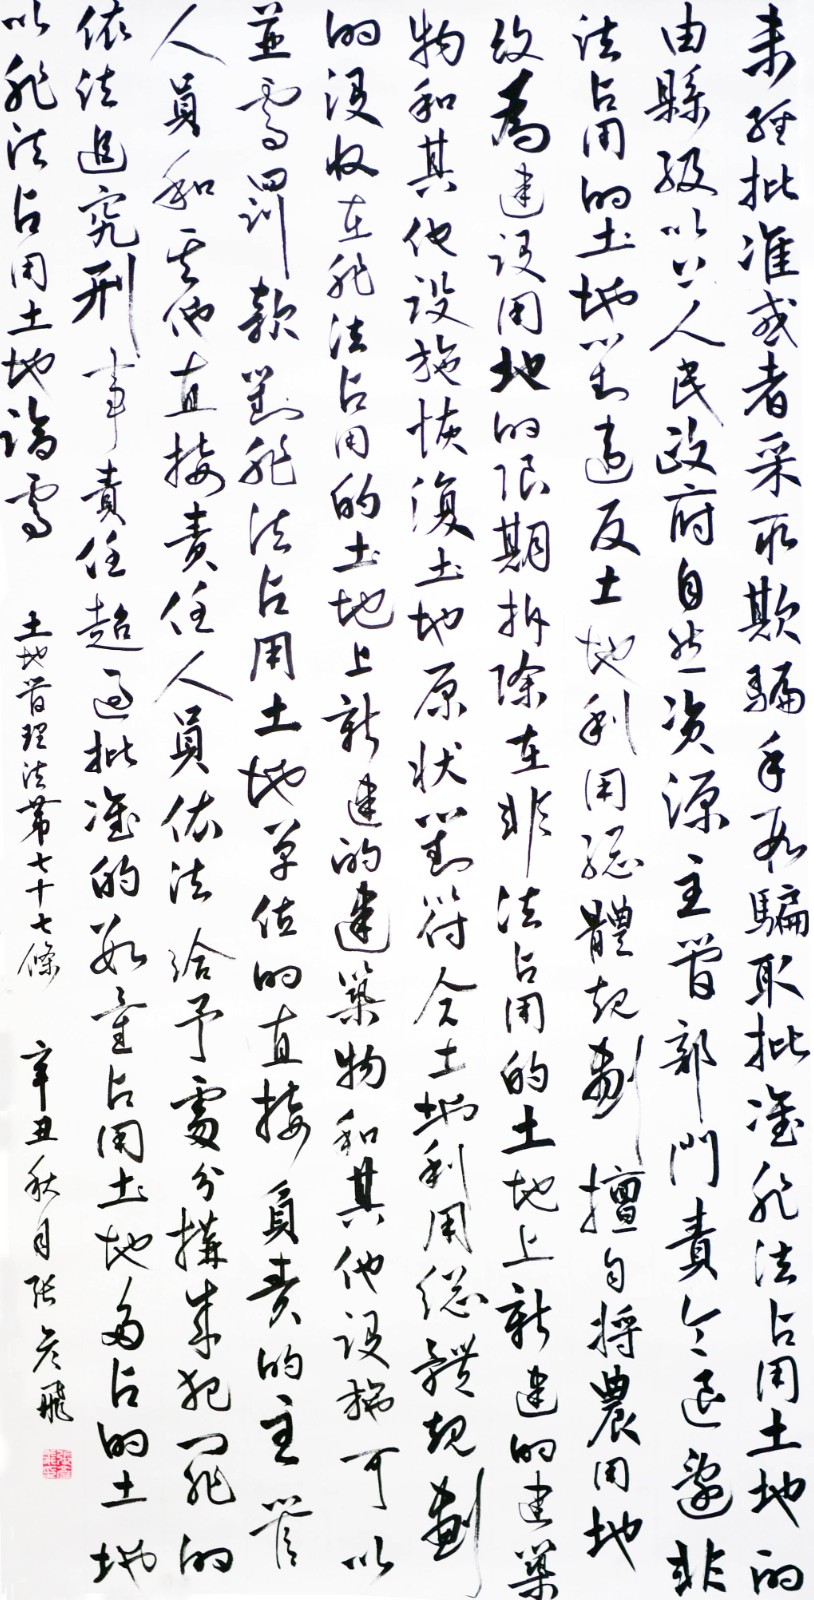 未經批准或者采取欺騙手段騙取批准非法占用土地的
由縣級以上人民政府自然資源主管部門責令退還非
法占用的土地對違反土地利用總體規劃擅自將農用地
改為建設用地的限期拆除在非法占用的土地上新建的建築
物和其他設施恢復土地原狀對符合土地利用總體規劃
的沒收在非法占用的土地上新建的建築物和其他設施可以
並處罰款對非法占用土地單位的直接負責的主管
人員和其他直接責任人員依法給予處分構成犯罪的
依法追究刑事責任超過批准的數量占用土地多占的土地
以非法占用土地論處
土地管理法第七十七條 辛丑秋月張彥飛